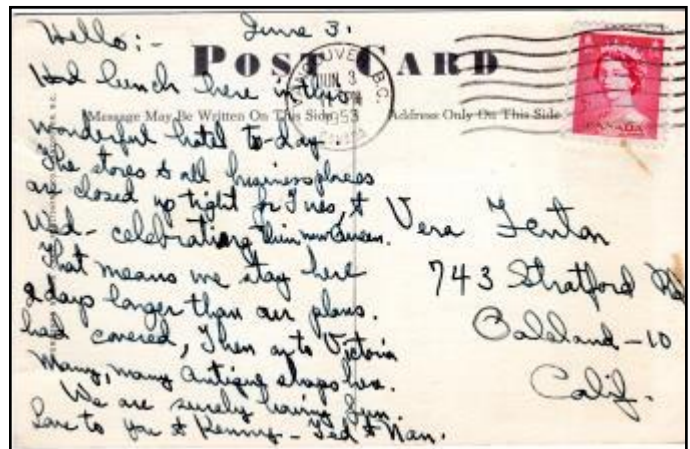 Hello:- June 3.
POST CARD
VANCOUVER B.C.
JUN 3
PM
1953
CANADA
Had lunch here in this
Message May Be Written On This Side
Address Only On This Side
CANADA
wonderful hotel to-day.
The stores & all business places
are closed up tight for Tues, &
Wed- celebrating their new Queen.
That means we stay here
2 days longer than our plans
had covered, Then on to Victoria
Many, many antique shops here.
We are surely having fun.
Love to you & Kenny - Ted & Nan.
Vera Fenton
743 Stratford Rd
Oakland-10
Calif.